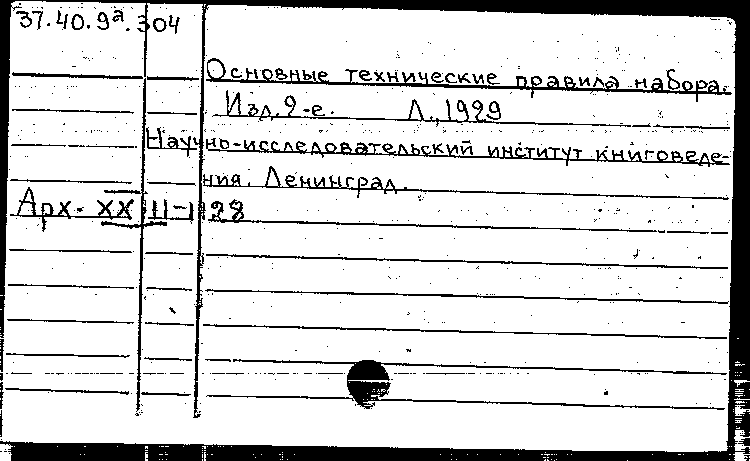 37.40.9ª.304
Основные технические правила набора.
Изд. 2-е. Л., 1929
Научно-исследовательский институт книговеде-
ния. Ленинград.
Арх. XXIII-1128